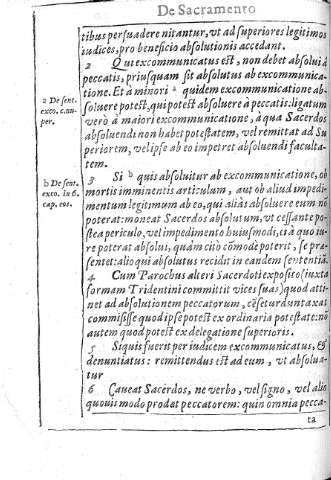 De Sacramento
tibus persuadere nitantur, vt ad superiores legitimos
iudices, pro beneficio absolutionis accedant.
2 Qui excommunicatus est, non debet absolui à
peccatis, priusquam sit absolutus ab excommunica-
tione. Et à minori a quidem excommunicatione ab-
soluere potest, qui potest absoluere à peccatis: ligatum
verò à maiori excommunicatione, à qua Sacerdos
absoluendi non habet potestatem, vel remittat ad Su
periorem, vel ipse ab eo impetret absoluendi faculta-
tem.
a De sent.
exco. c. nu-
per.
3 Si b quis absoluitur ab excommunicatione, ob
mortis imminentis articulum, aut ob aliud impedi-
mentum legitimum ab eo, qui aliàs absoluere eum nõ
poterat: moneat Sacerdos absolutum, vt cessante po-
stea periculo, vel impedimento huiusmodi, ei à quo iu-
re poterat absolui, quàm citò cõmodè poterit, se præ-
sentet: alioqui absolutus recidit in eandem sententiã.
b De sent.
exco. in 6.
cap. eos.
4 Cum Parochus alteri Sacerdoti exposito (iuxta
formam Tridentini committit vices suas) quod atti-
net ad absolutionem peccatorum, cẽsetur duntaxat
commisisse quod ipse potest ex ordinaria potestate: nõ
autem quod potest ex delegatione superioris.
5 Si quis fuerit per iudicem excommunicatus, &
denuntiatus: remittendus est ad eum, vt absolua-
tur
6 Caueat Sacerdos, ne verbo, vel signo, vel alio
quouis modo prodat peccatorem: quin omnia pecca-
ta